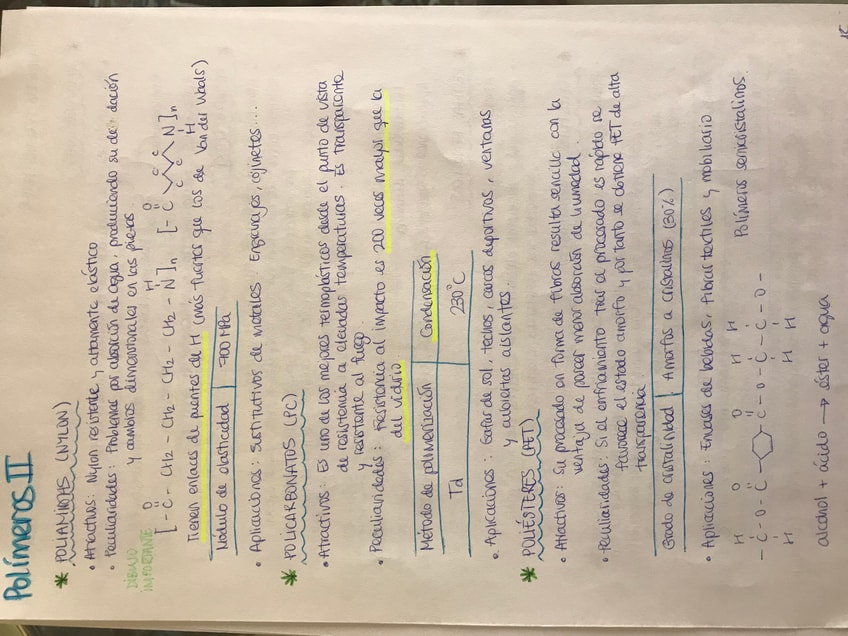 Polímeros II
* POLIAMIDAS (NYLON)
• Atractivos: Nylon resistente y altamente elástico
• Peculiaridades: Problemas por absorción de agua, produciendo su de dación
y cambios dimensionales en las piezas
DIBUJO
IMPORTANTE
O H
[- C - CH2 - CH2 - CH2 - CH2 - N]n
O
[- C C C C C N]n
H
Tienen enlaces de puentes de H (más fuertes que los de Van der Waals)
Módulo de elasticidad | 700 MPa
• Aplicaciones: Sustitutivos de metales: Engranajes, cojinetes...
* POLICARBONATOS (PC)
• Atractivos: Es uno de los mejores termoplásticos desde el punto de vista
de resistencia a elevadas temperaturas. Es transparente
y resistente al fuego
• Peculiaridades: Resistencia al impacto es 200 veces mayor que la
del vidrio
Método de polimerización | Condensación
Td | 230°C
• Aplicaciones: Gafas de sol, techos, cascos deportivos, ventanas
y cubiertas aislantes.
* POLIÉSTERES (PET)
• Atractivos: Su procesado en forma de fibras resulta sencillo con la
ventaja de poseer menor absorción de humedad.
• Peculiaridades: Si el enfriamiento tras el procesado es rápido se
favorece el estado amorfo y por tanto se obtiene PET de alta
transparencia
Grado de cristalinidad | Amorfos a cristalinos (30%)
• Aplicaciones: Envases de bebidas, fibras textiles y mobiliario
H O O H H
- C - O - C - C - O - C - C - O -
H H H
Polímeros semicristalinos
alcohol + ácido → éster + agua
15